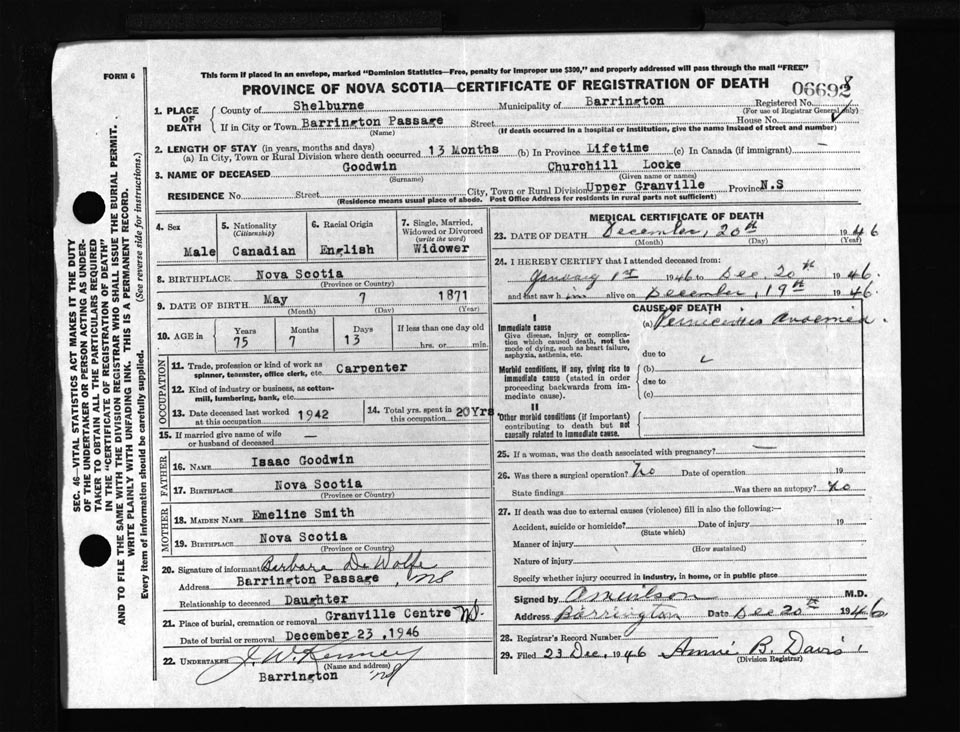 This form if placed in an envelope, marked "Dominion Statistics—Free, penalty for improper use $300," and properly addressed will pass through the mail "FREE"
FORM 6
PROVINCE OF NOVA SCOTIA—CERTIFICATE OF REGISTRATION OF DEATH 06692
1. PLACE OF DEATH
County of Shelburne Municipality of Barrington Registered No.
(For use of Registrar General only)
If in City or Town Barrington Passage Street House No.
(Name) (If death occurred in a hospital or institution, give the name instead of street and number)
2. LENGTH OF STAY (in years, months and days)
(a) In City, Town or Rural Division where death occurred 13 Months (b) In Province Lifetime (c) In Canada (if immigrant) —
3. NAME OF DECEASED Goodwin Churchill Locke
(Surname) (Given name or names)
RESIDENCE No. Street City, Town or Rural Division Upper Granville Province N.S
(Residence means usual place of abode. Post Office Address for residents in rural parts not sufficient)
4. Sex Male
5. Nationality (Citizenship) Canadian
6. Racial Origin English
7. Single, Married, Widowed or Divorced (write the word) Widower
8. BIRTHPLACE Nova Scotia
(Province or Country)
9. DATE OF BIRTH May 7 1871
(Month) (Day) (Year)
10. AGE in Years Months Days If less than one day old
75 7 13 hrs. or min.
OCCUPATION
11. Trade, profession or kind of work as spinner, teamster, office clerk, etc. Carpenter
12. Kind of industry or business, as cotton-mill, lumbering, bank, etc.
13. Date deceased last worked at this occupation 1942
14. Total yrs. spent in this occupation 20Yrs
15. If married give name of wife or husband of deceased —
FATHER
16. NAME Isaac Goodwin
17. BIRTHPLACE Nova Scotia
(Province or Country)
MOTHER
18. MAIDEN NAME Emeline Smith
19. BIRTHPLACE Nova Scotia
(Province or Country)
20. Signature of informant Barbara De Wolfe
Address Barrington Passage, NS
Relationship to deceased Daughter
21. Place of burial, cremation or removal Granville Centre
Date of burial or removal December 23, 1946
22. UNDERTAKER J. W. Kenney
(Name and address)
Barrington NS
MEDICAL CERTIFICATE OF DEATH
23. DATE OF DEATH December, 20th 1946
(Month) (Day) (Year)
24. I HEREBY CERTIFY that I attended deceased from:
January 1st 1946 to Dec. 20th 1946.
and last saw him alive on December, 19th 1946.
CAUSE OF DEATH
I
Immediate cause
Give disease, injury or complication which caused death, not the mode of dying, such as heart failure, asphyxia, asthenia, etc.
(a) Pernicious Anaemia.
due to
Morbid conditions, if any, giving rise to immediate cause (stated in order proceeding backwards from immediate cause).
(b)
due to
(c)
II
Other morbid conditions (if important) contributing to death but not causally related to immediate cause.
25. If a woman, was the death associated with pregnancy? —
26. Was there a surgical operation? No Date of operation 19
State findings Was there an autopsy? No
27. If death was due to external causes (violence) fill in also the following:—
Accident, suicide or homicide? Date of injury 19
(State which)
Manner of injury
(How sustained)
Nature of injury
Specify whether injury occurred in industry, in home, or in public place
Signed by A M Wilson M.D.
Address Barrington Date Dec 20th 1946
28. Registrar's Record Number
29. Filed 23 Dec, 1946 Annie B. Davis
(Division Registrar)
SEC. 46—VITAL STATISTICS ACT MAKES IT THE DUTY
OF THE UNDERTAKER OR PERSON ACTING AS UNDER-
TAKER TO OBTAIN ALL THE PARTICULARS REQUIRED
IN THE "CERTIFICATE OF REGISTRATION OF DEATH"
AND TO FILE THE SAME WITH THE DIVISION REGISTRAR WHO SHALL ISSUE THE BURIAL PERMIT.
WRITE PLAINLY WITH UNFADING INK. THIS IS A PERMANENT RECORD.
Every item of information should be carefully supplied. (See reverse side for instructions.)